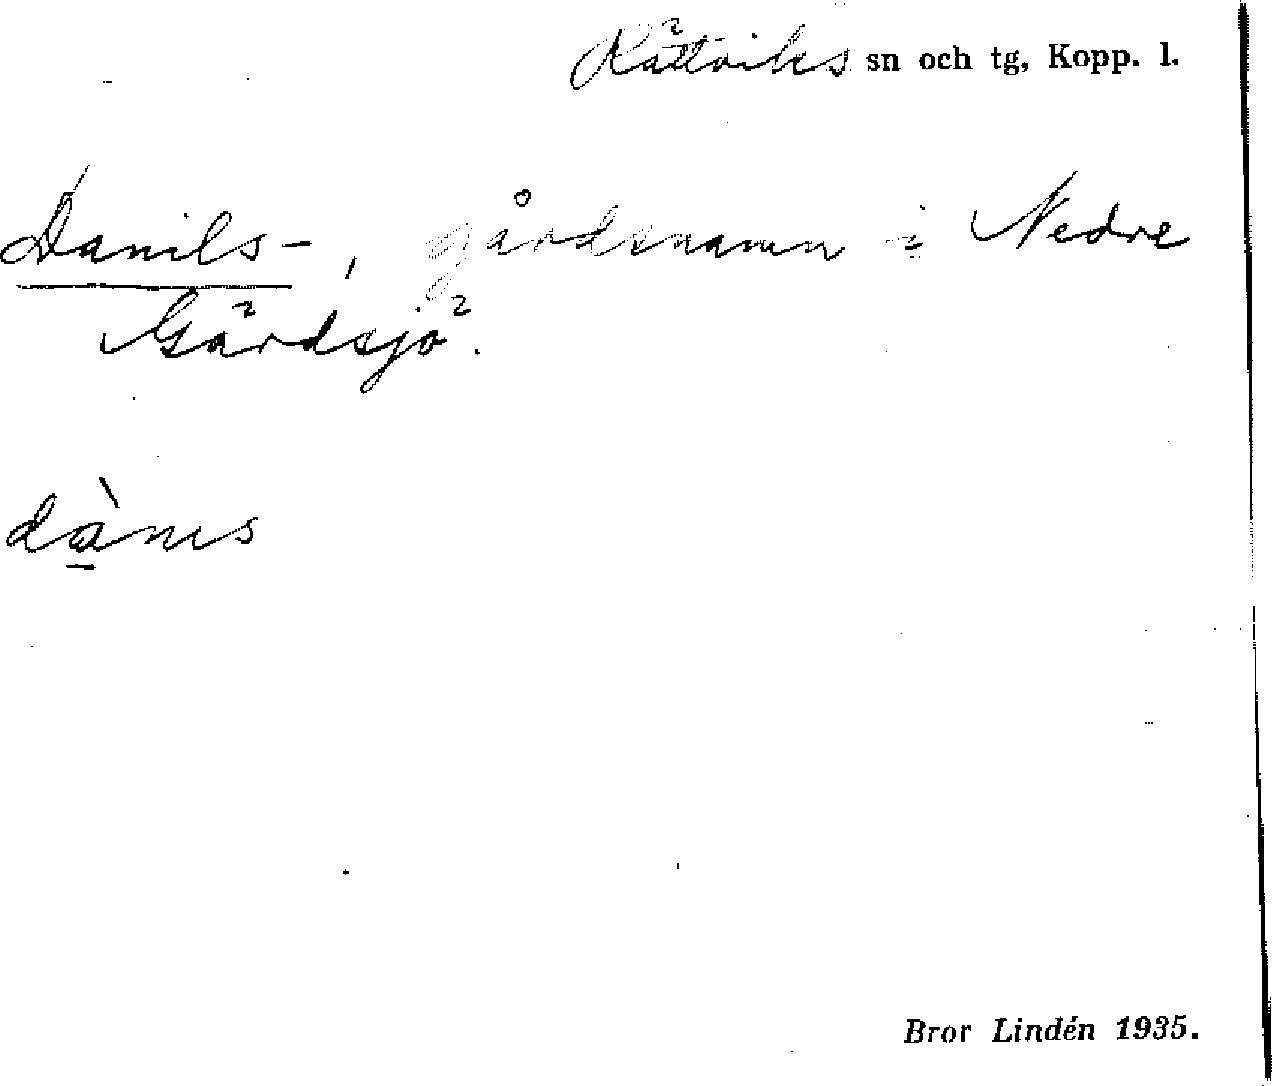 Rättviks sn och tg, Kopp. l.
Danils-, gårdsnamn i Nedre
Gärdsjö.
dànıs
Bror Lindén 1935.